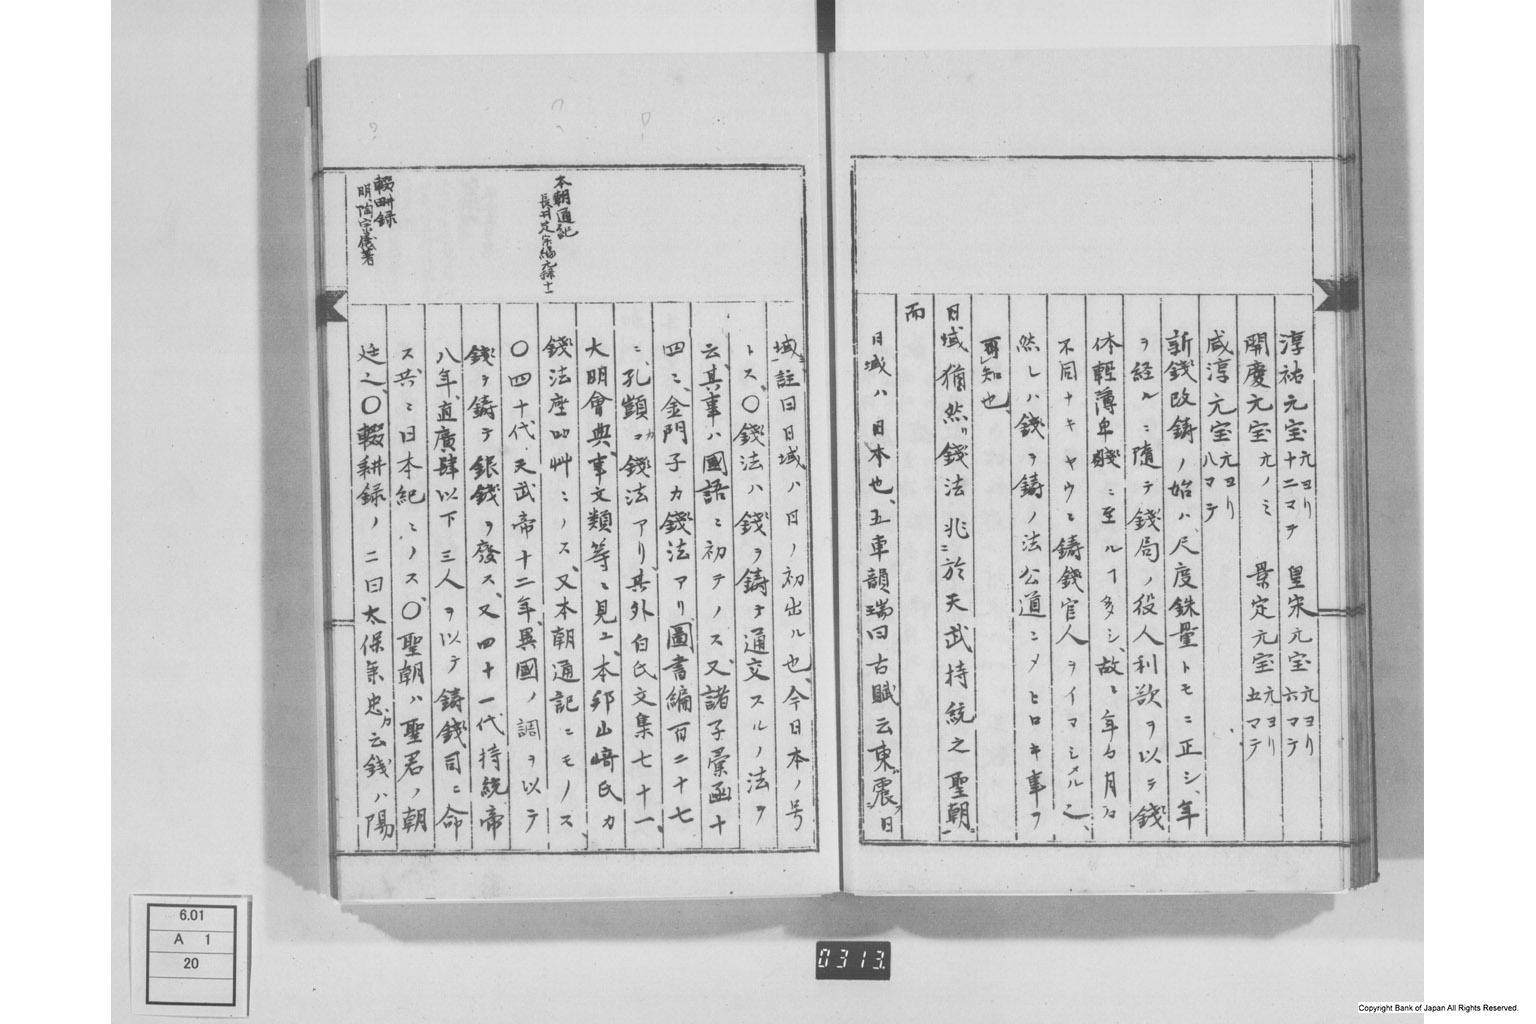 淳祐元宝元ヨリ十二マテ 皇宋元宝元ヨリ六マテ
開慶元宝元ノミ 景定元宝元ヨリ五マテ
咸淳元宝元ヨリ八マテ
新錢改鋳ノ始ハ、尺度銖量トモニ正シ、年
ヲ経ルニ随テ錢局ノ役人利欲ヲ以テ錢
体輕薄卑賤ニ至ルヿ多シ、故ニ年号月号
不同ナキヤウニ鋳錢官人ヲイマシメルヿ
然レハ錢ヲ鋳ノ法公道ニメヒロキ事ヲ
可知也、
日域猶然リ錢法兆ニ於天武持統之聖朝ニ
而
日域ハ日本也、五車韻瑞曰古賦云東震ヲ日
域註曰日域ハ日ノ初出ル也、今日本ノ号
トス、〇錢法ハ錢ヲ鋳テ通交スルノ法ヲ
云、其事ハ國語ニ初テノス、又諸子彙函十
四ニ、金門子カ錢法アリ圖書編百二十七
ニ、孔顗カ錢法アリ、其外白氏文集七十一、
大明會典事文類等ニ見ユ、本邦山﨑氏カ
錢法座右艸ニノス、又本朝通記ニモノス、
〇四十代天武帝十二年、異國ノ調ヲ以テ
錢ヲ鋳テ銀錢ヲ發ス、又四十一代持統帝
八年、直廣肆以下三人ヲ以テ鋳錢司ニ命
ス、共ニ日本紀ニノス、〇聖朝ハ聖君ノ朝
廷ヿ、〇輟耕録ノ二曰太保秉忠カ云錢ハ陽
本朝通記
長井定宗編元祿十一
輟畊録
明、陶宗儀著
6.01
A 1
20
0313.
Copyright Bank of Japan All Rights Reserved.